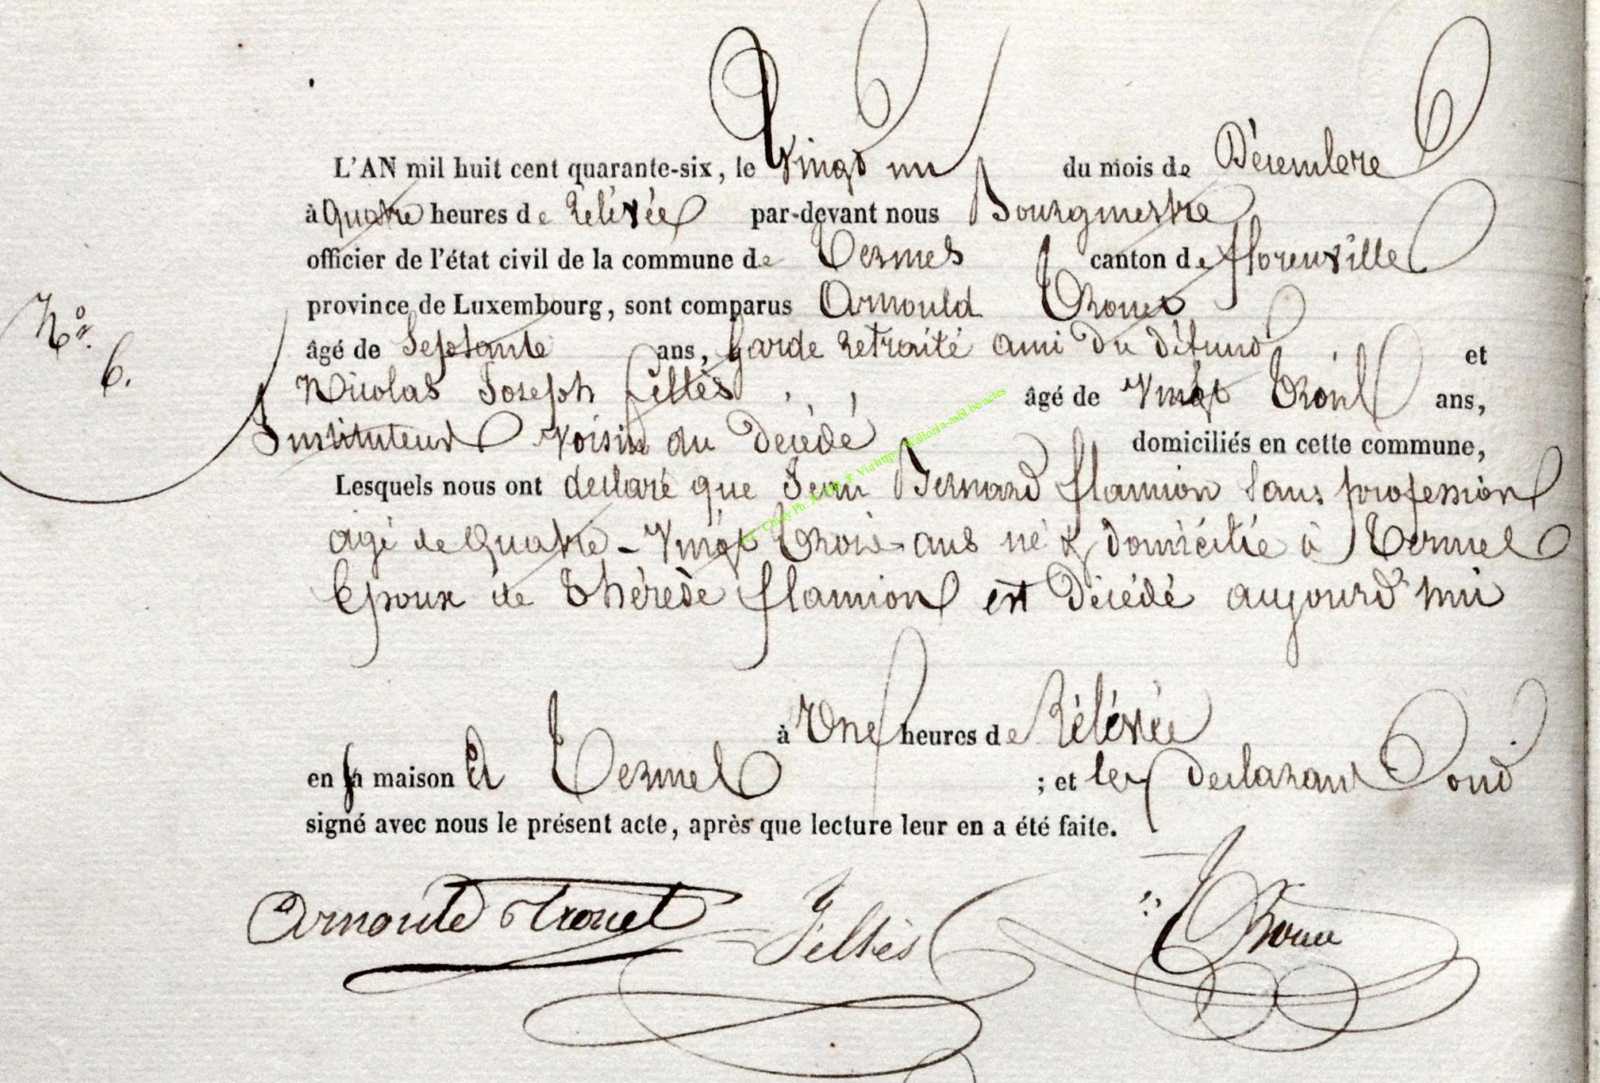 L'AN mil huit cent quarante-six, le Vingt un du mois de Décembre
à Quatre heures de Rélévée par-devant nous Bourgmestre
officier de l'état civil de la commune de Termes canton de florenville
province de Luxembourg, sont comparus Arnould Thouet
N° 6.
âgé de Septante ans, Garde retraité ami du défunt et
Nicolas Joseph âgé de Vingt trois ans,
Instituteur Voisin du Décédé domiciliés en cette commune,
Lesquels nous ont declaré que Jean Bernard flamion Sans profession
agé de Quatre-Vingt trois ans né & domicilié à Termes
Epoux de Thérèse flamion est Décédé aujourd'hui
à Une heures de Rélévée
en sa maison à Termes ; et les declarant ond
signé avec nous le présent acte, après que lecture leur en a été faite.